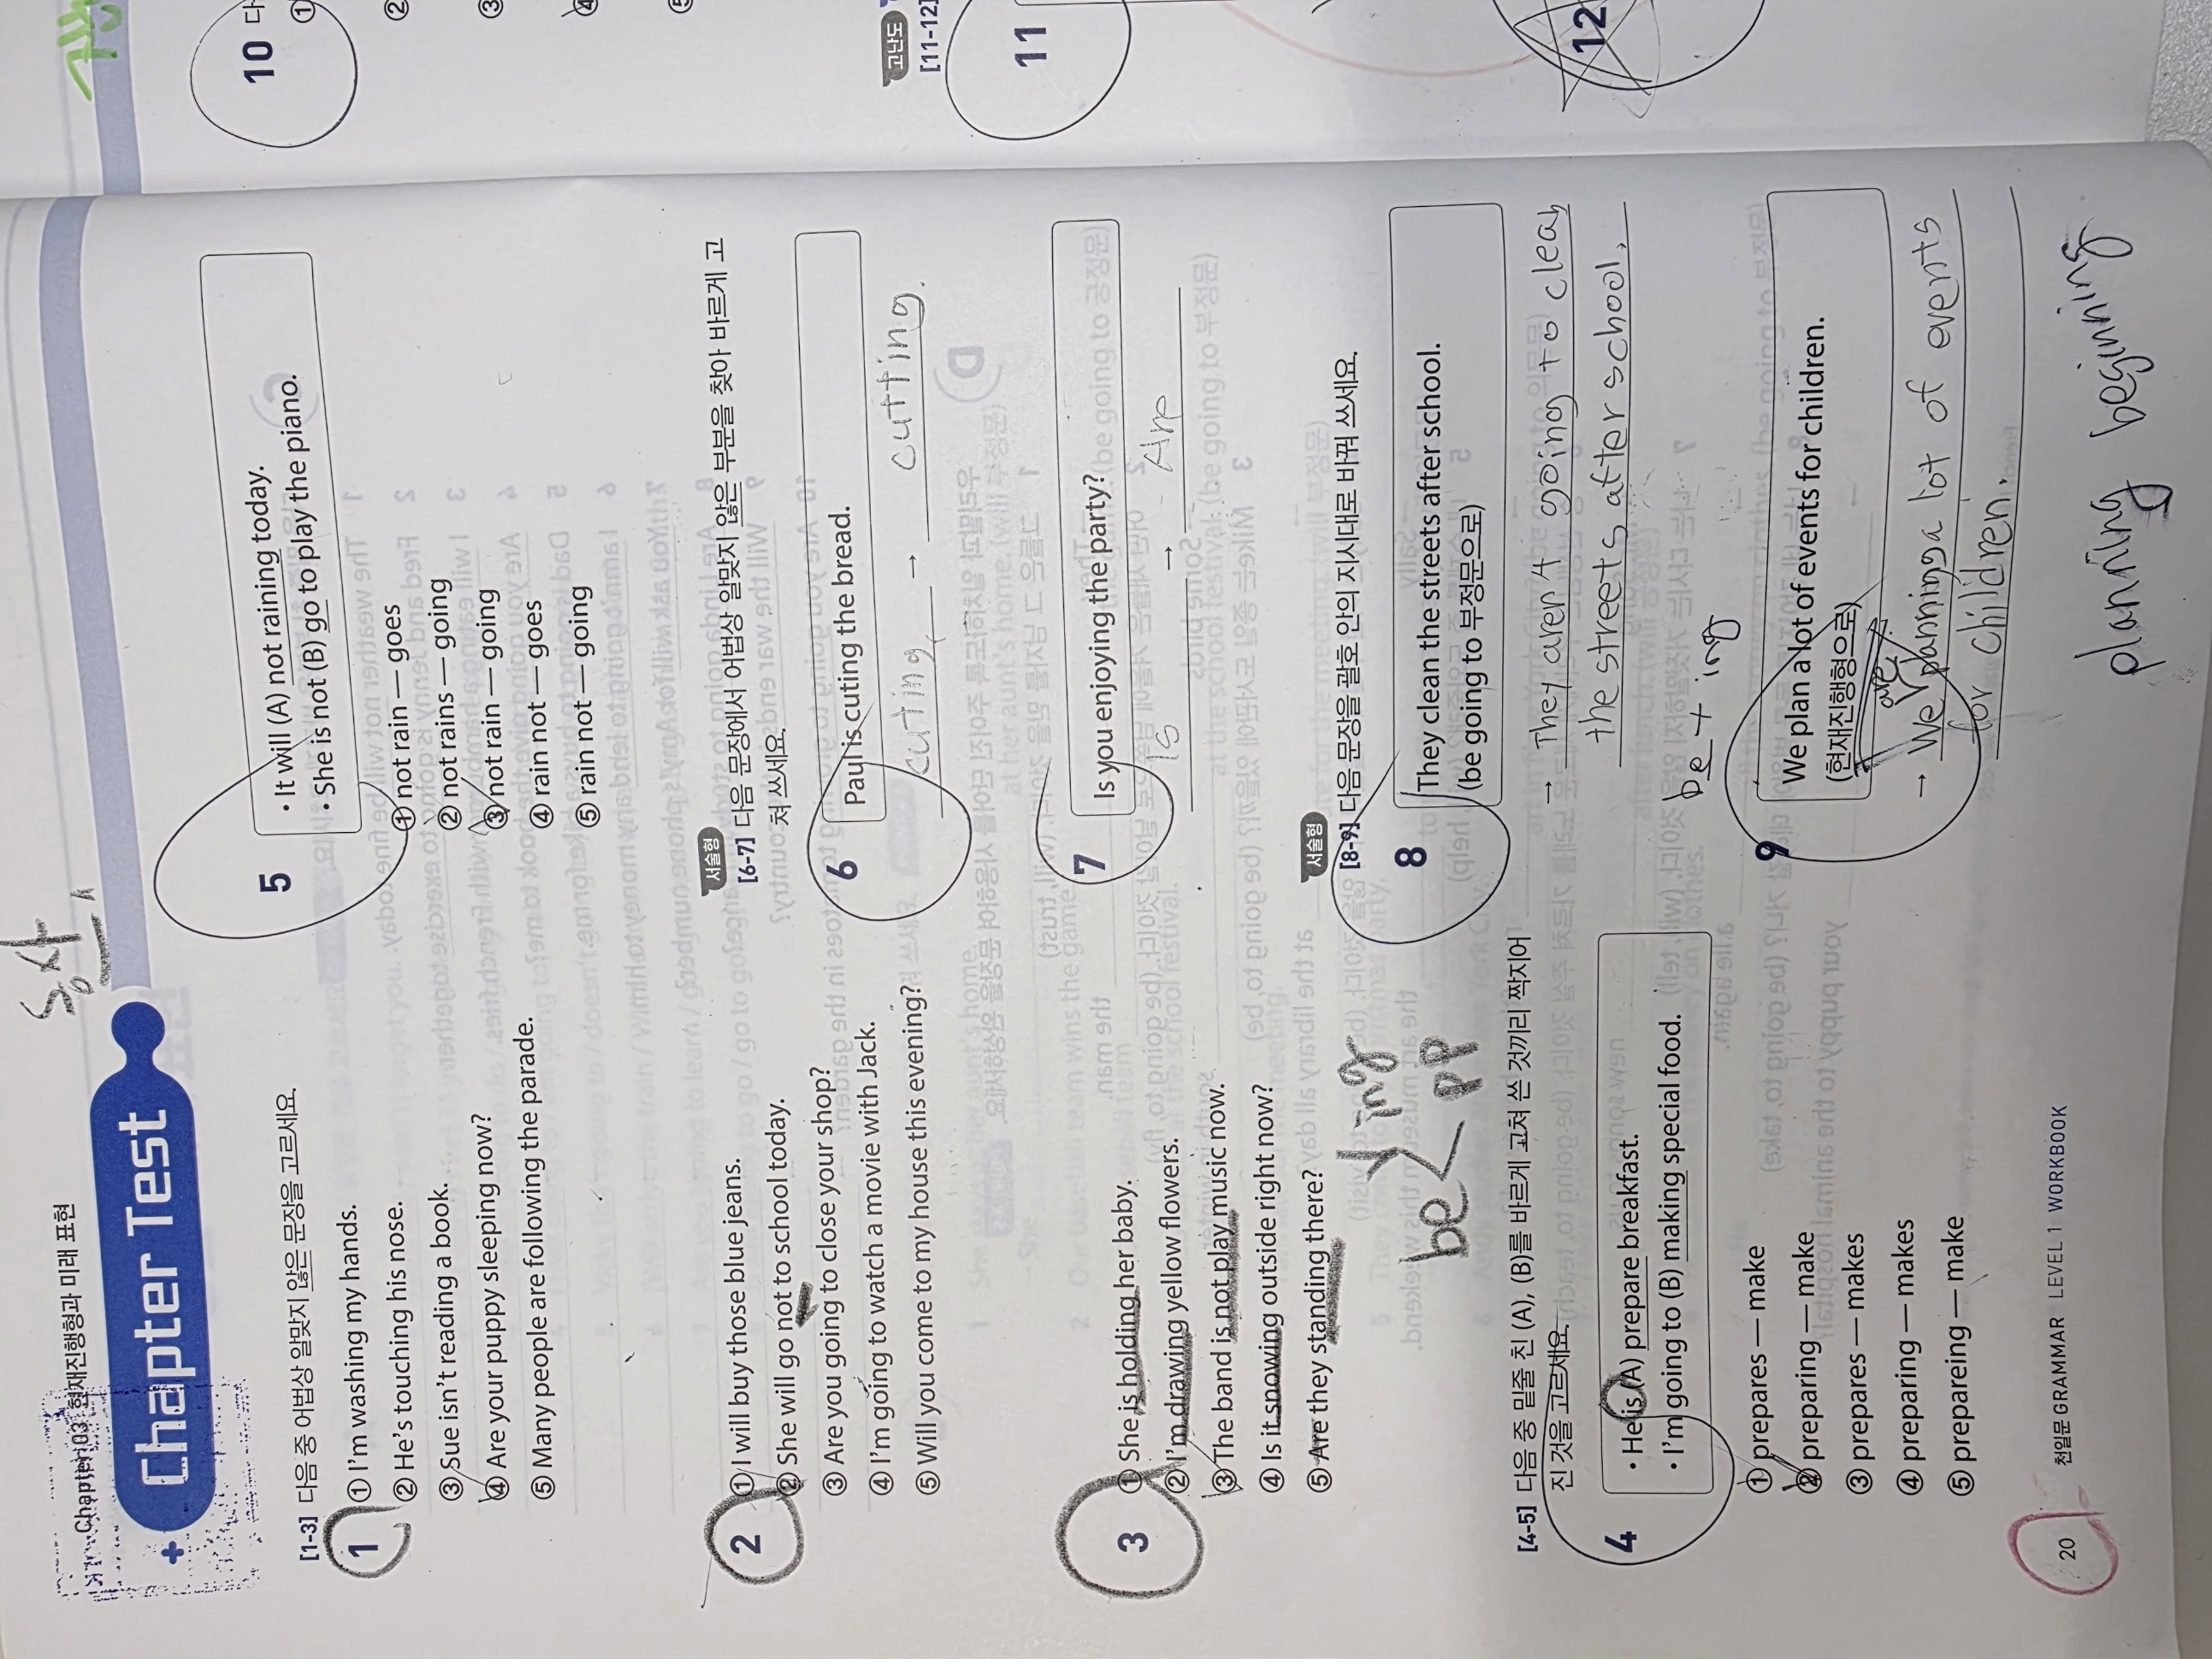 동사
Chapter 03 현재진행형과 미래 표현
Chapter Test
[1-3] 다음 중 어법상 알맞지 않은 문장을 고르세요.
1
① I'm washing my hands.
② He's touching his nose.
③ Sue isn't reading a book.
④ Are your puppy sleeping now?
⑤ Many people are following the parade.
2
① I will buy those blue jeans.
② She will go not to school today.
③ Are you going to close your shop?
④ I'm going to watch a movie with Jack.
⑤ Will you come to my house this evening?
3
① She is holding her baby.
② I'm drawing yellow flowers.
③ The band is not play music now.
④ Is it snowing outside right now?
⑤ Are they standing there?
be < Ving
pp
[4-5] 다음 중 밑줄 친 (A), (B)를 바르게 고쳐 쓴 것끼리 짝지어
진 것을 고르세요.
4
• He is (A) prepare breakfast.
• I'm going to (B) making special food.
① prepares — make
② preparing — make
③ prepares — makes
④ preparing — makes
⑤ prepareing — make
5
• It will (A) not raining today.
• She is not (B) go to play the piano.
① not rain — goes
② not rains — going
③ not rain — going
④ rain not — goes
⑤ rain not — going
서술형
[6-7] 다음 문장에서 어법상 알맞지 않은 부분을 찾아 바르게 고
쳐 쓰세요.
6
Paul is cuting the bread.
cuting → cutting.
7
Is you enjoying the party?
Is → Are
서술형
[8-9] 다음 문장을 괄호 안의 지시대로 바꿔 쓰세요.
8
They clean the streets after school.
(be going to 부정문으로)
→ They aren't going to clean
the streets after school.
be + ing
9
We plan a lot of events for children.
(현재진행형으로)
are
→ We planning a lot of events
for children.
planning beginning
20 천일문 GRAMMAR LEVEL 1 WORKBOOK
10 다
①
②
③
④
⑤
고난도
[11-12]
11
12